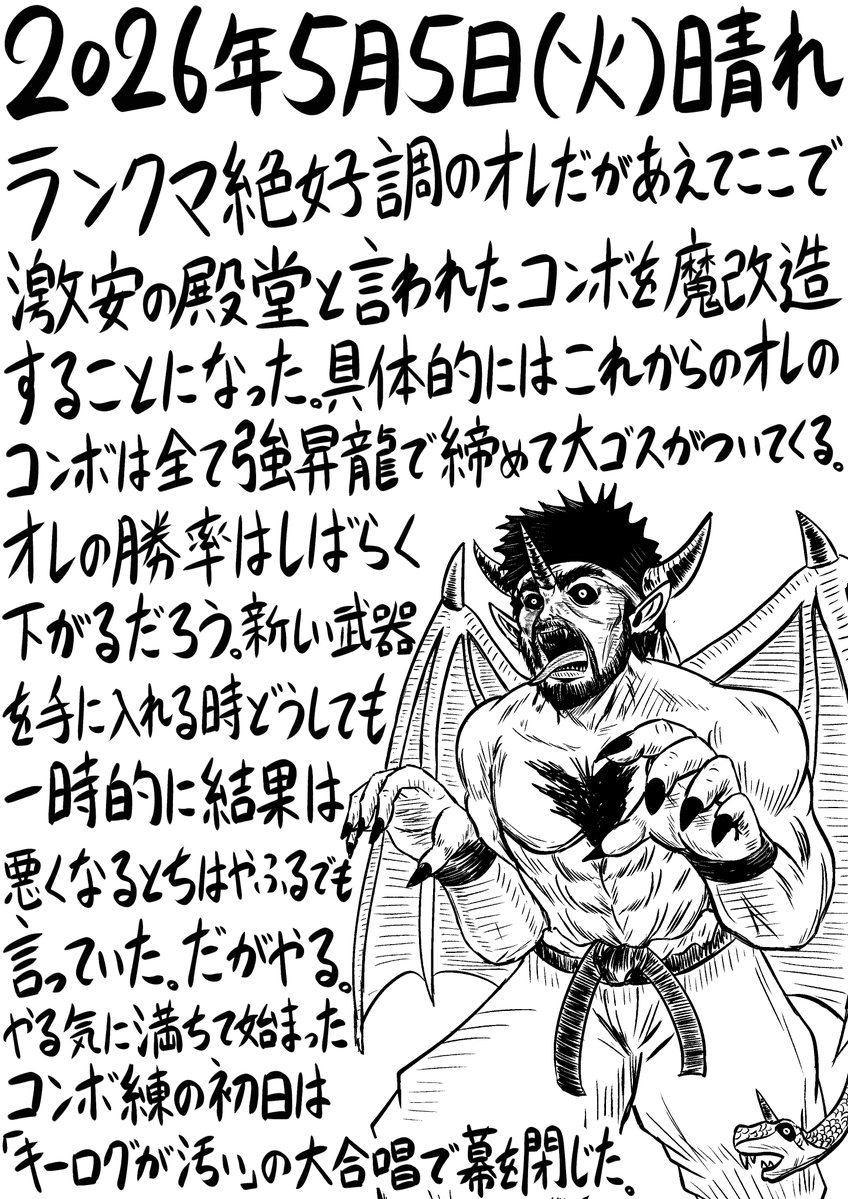 2026年5月5日(火)晴れ
ランクマ絶好調のオレだがあえてここで
激安の殿堂と言われたコンボを魔改造
することになった。具体的にはこれからのオレの
コンボは全て強昇龍で締めて大ゴスがついてくる。
オレの勝率はしばらく
下がるだろう。新しい武器
を手に入れる時どうしても
一時的に結果は
悪くなるとちはやふるでも
言っていた。だがやる。
やる気に満ちて始まった
コンボ練の初日は
「キーログが汚い」の大合唱で幕を閉じた。